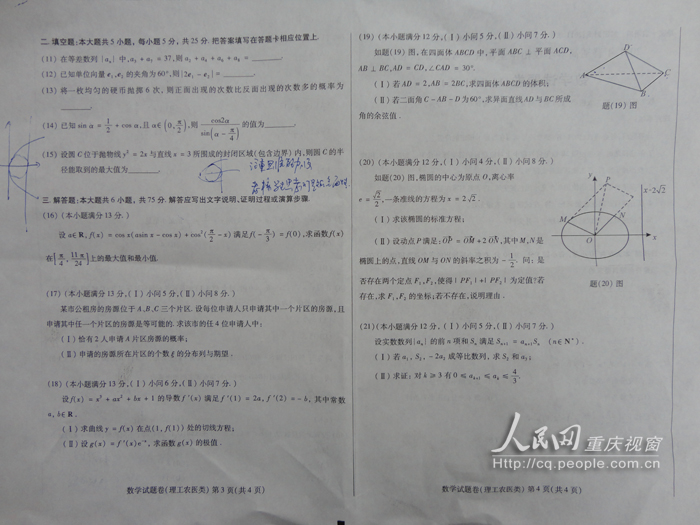 二.填空题:本大题共5小题,每小题5分,共25分.把答案填写在答题卡相应位置上.
(11)在等差数列{aₙ}中,a₃+a₇=37,则a₂+a₄+a₆+a₈=________.
(12)已知单位向量e₁,e₂的夹角为60°,则|2e₁-e₂|=________.
(13)将一枚均匀的硬币抛掷6次,则正面出现的次数比反面出现的次数多的概率为
________.
(14)已知sinα=1/2+cosα,且α∈(0,π/2),则cos2α/sin(α-π/4)的值为________.
(15)设圆C位于抛物线y²=2x与直线x=3所围成的封闭区域(包含边界)内,则圆C的半
径能取到的最大值为________.
三.解答题:本大题共6小题,共75分.解答应写出文字说明、证明过程或演算步骤.
(16)(本小题满分13分)
设a∈R,f(x)=cosx(asinx-cosx)+cos²(π/2-x)满足f(-π/3)=f(0),求函数f(x)
在[π/4,11π/24]上的最大值和最小值.
(17)(本小题满分13分,(Ⅰ)小问5分,(Ⅱ)小问8分.)
某市公租房的房源位于A,B,C三个片区.设每位申请人只申请其中一个片区的房源,且
申请其中任一个片区的房源是等可能的.求该市的任4位申请人中:
(Ⅰ)恰有2人申请A片区房源的概率;
(Ⅱ)申请的房源所在片区的个数ξ的分布列与期望.
(18)(本小题满分13分,(Ⅰ)小问6分,(Ⅱ)小问7分.)
设f(x)=x³+ax²+bx+1的导数f′(x)满足f′(1)=2a,f′(2)=-b,其中常数
a,b∈R.
(Ⅰ)求曲线y=f(x)在点(1,f(1))处的切线方程;
(Ⅱ)设g(x)=f′(x)e⁻ˣ,求函数g(x)的极值.
数学试题卷(理工农医类)第3页(共4页)
(19)(本小题满分12分,(Ⅰ)小问5分,(Ⅱ)小问7分.)
如题(19)图,在四面体ABCD中,平面ABC⊥平面ACD,
AB⊥BC,AD=CD,∠CAD=30°.
(Ⅰ)若AD=2,AB=2BC,求四面体ABCD的体积;
(Ⅱ)若二面角C-AB-D为60°,求异面直线AD与BC所成
角的余弦值.
D
A
C
B
题(19)图
(20)(本小题满分12分,(Ⅰ)小问4分,(Ⅱ)小问8分.)
如题(20)图,椭圆的中心为原点O,离心率
e=√2/2,一条准线的方程为x=2√2.
(Ⅰ)求该椭圆的标准方程;
(Ⅱ)设动点P满足:OP=OM+2ON,其中M,N是
椭圆上的点,直线OM与ON的斜率之积为-1/2.问:是
否存在两个定点F₁,F₂,使得|PF₁|+|PF₂|为定值?若
存在,求F₁,F₂的坐标;若不存在,说明理由.
y
P
x=2√2
M
N
O
x
题(20)图
(21)(本小题满分12分,(Ⅰ)小问5分,(Ⅱ)小问7分.)
设实数数列{aₙ}的前n项和Sₙ满足Sₙ₊₁=aₙ₊₁Sₙ (n∈N*).
(Ⅰ)若a₁,S₂,-2a₂成等比数列,求S₂和a₃;
(Ⅱ)求证:对k≥3有0≤aₖ₊₁≤aₖ≤4/3.
数学试题卷(理工农医类)第4页(共4页)
人民网 重庆视窗
http://cq.people.com.cn